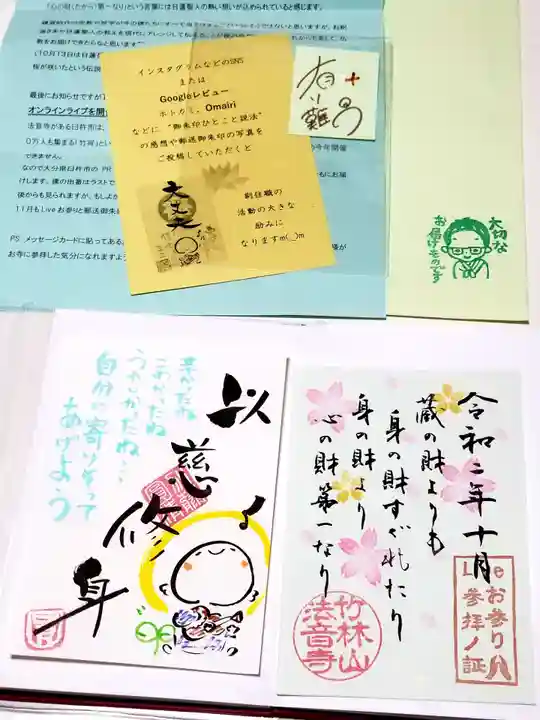 「心の財(たから)第一なり」という言葉には日蓮聖人の熱い想いが込められていると感じます。
(10月13日は日蓮
桜が咲いたという伝説
最後にお知らせですが
オンラインライブを開
法音寺がある臼杵市は、
0万人も集まる「竹宵」と
できません。
なので大分県臼杵市の PR
げします。僕の出番はラストで
後からも見られますが、もしよか
11月もLiveお参りと郵送御朱
PS メッセージカードに貼ってある
お寺に参拝した気分になれますよ
インスタグラムなどのSNS
または
Googleレビュー
ホトカミ、Omairi
などに "御朱印ひとこと説法"
の感想や郵送御朱印の写真を
ご投稿していただくと
副住職の
活動の大きな
励みに
なりますm(__)m
大丈夫
大切な
お届けものです
以慈修身
辛かったね
こわかったね
つらかったね…
自分に寄りそって
あげよう
令和二年十月
蔵の財よりも
身の財すぐれたり
身の財より
心の財第一なり
Liveお参り
参拝ノ証
竹林山
法音寺